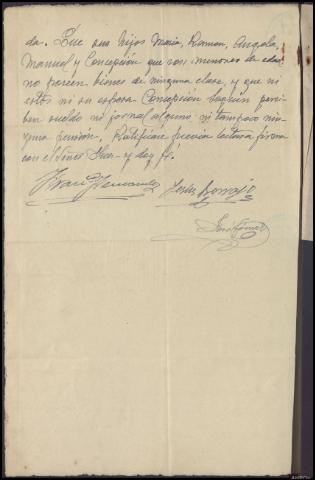 da. Que sus hijos Maria, Ramon, Angela,
Manuel y Concepción que son menores de edad
no poseen bienes de ninguna clase, y que ni
estos ni su esposa Concepción perci
ben sueldo ni jornal alguno ni tampoco nin
guna pensión. Ratifícase previa lectura firma
con el Señor Juez y doy fé.
Franco Fernandez
José Gómez